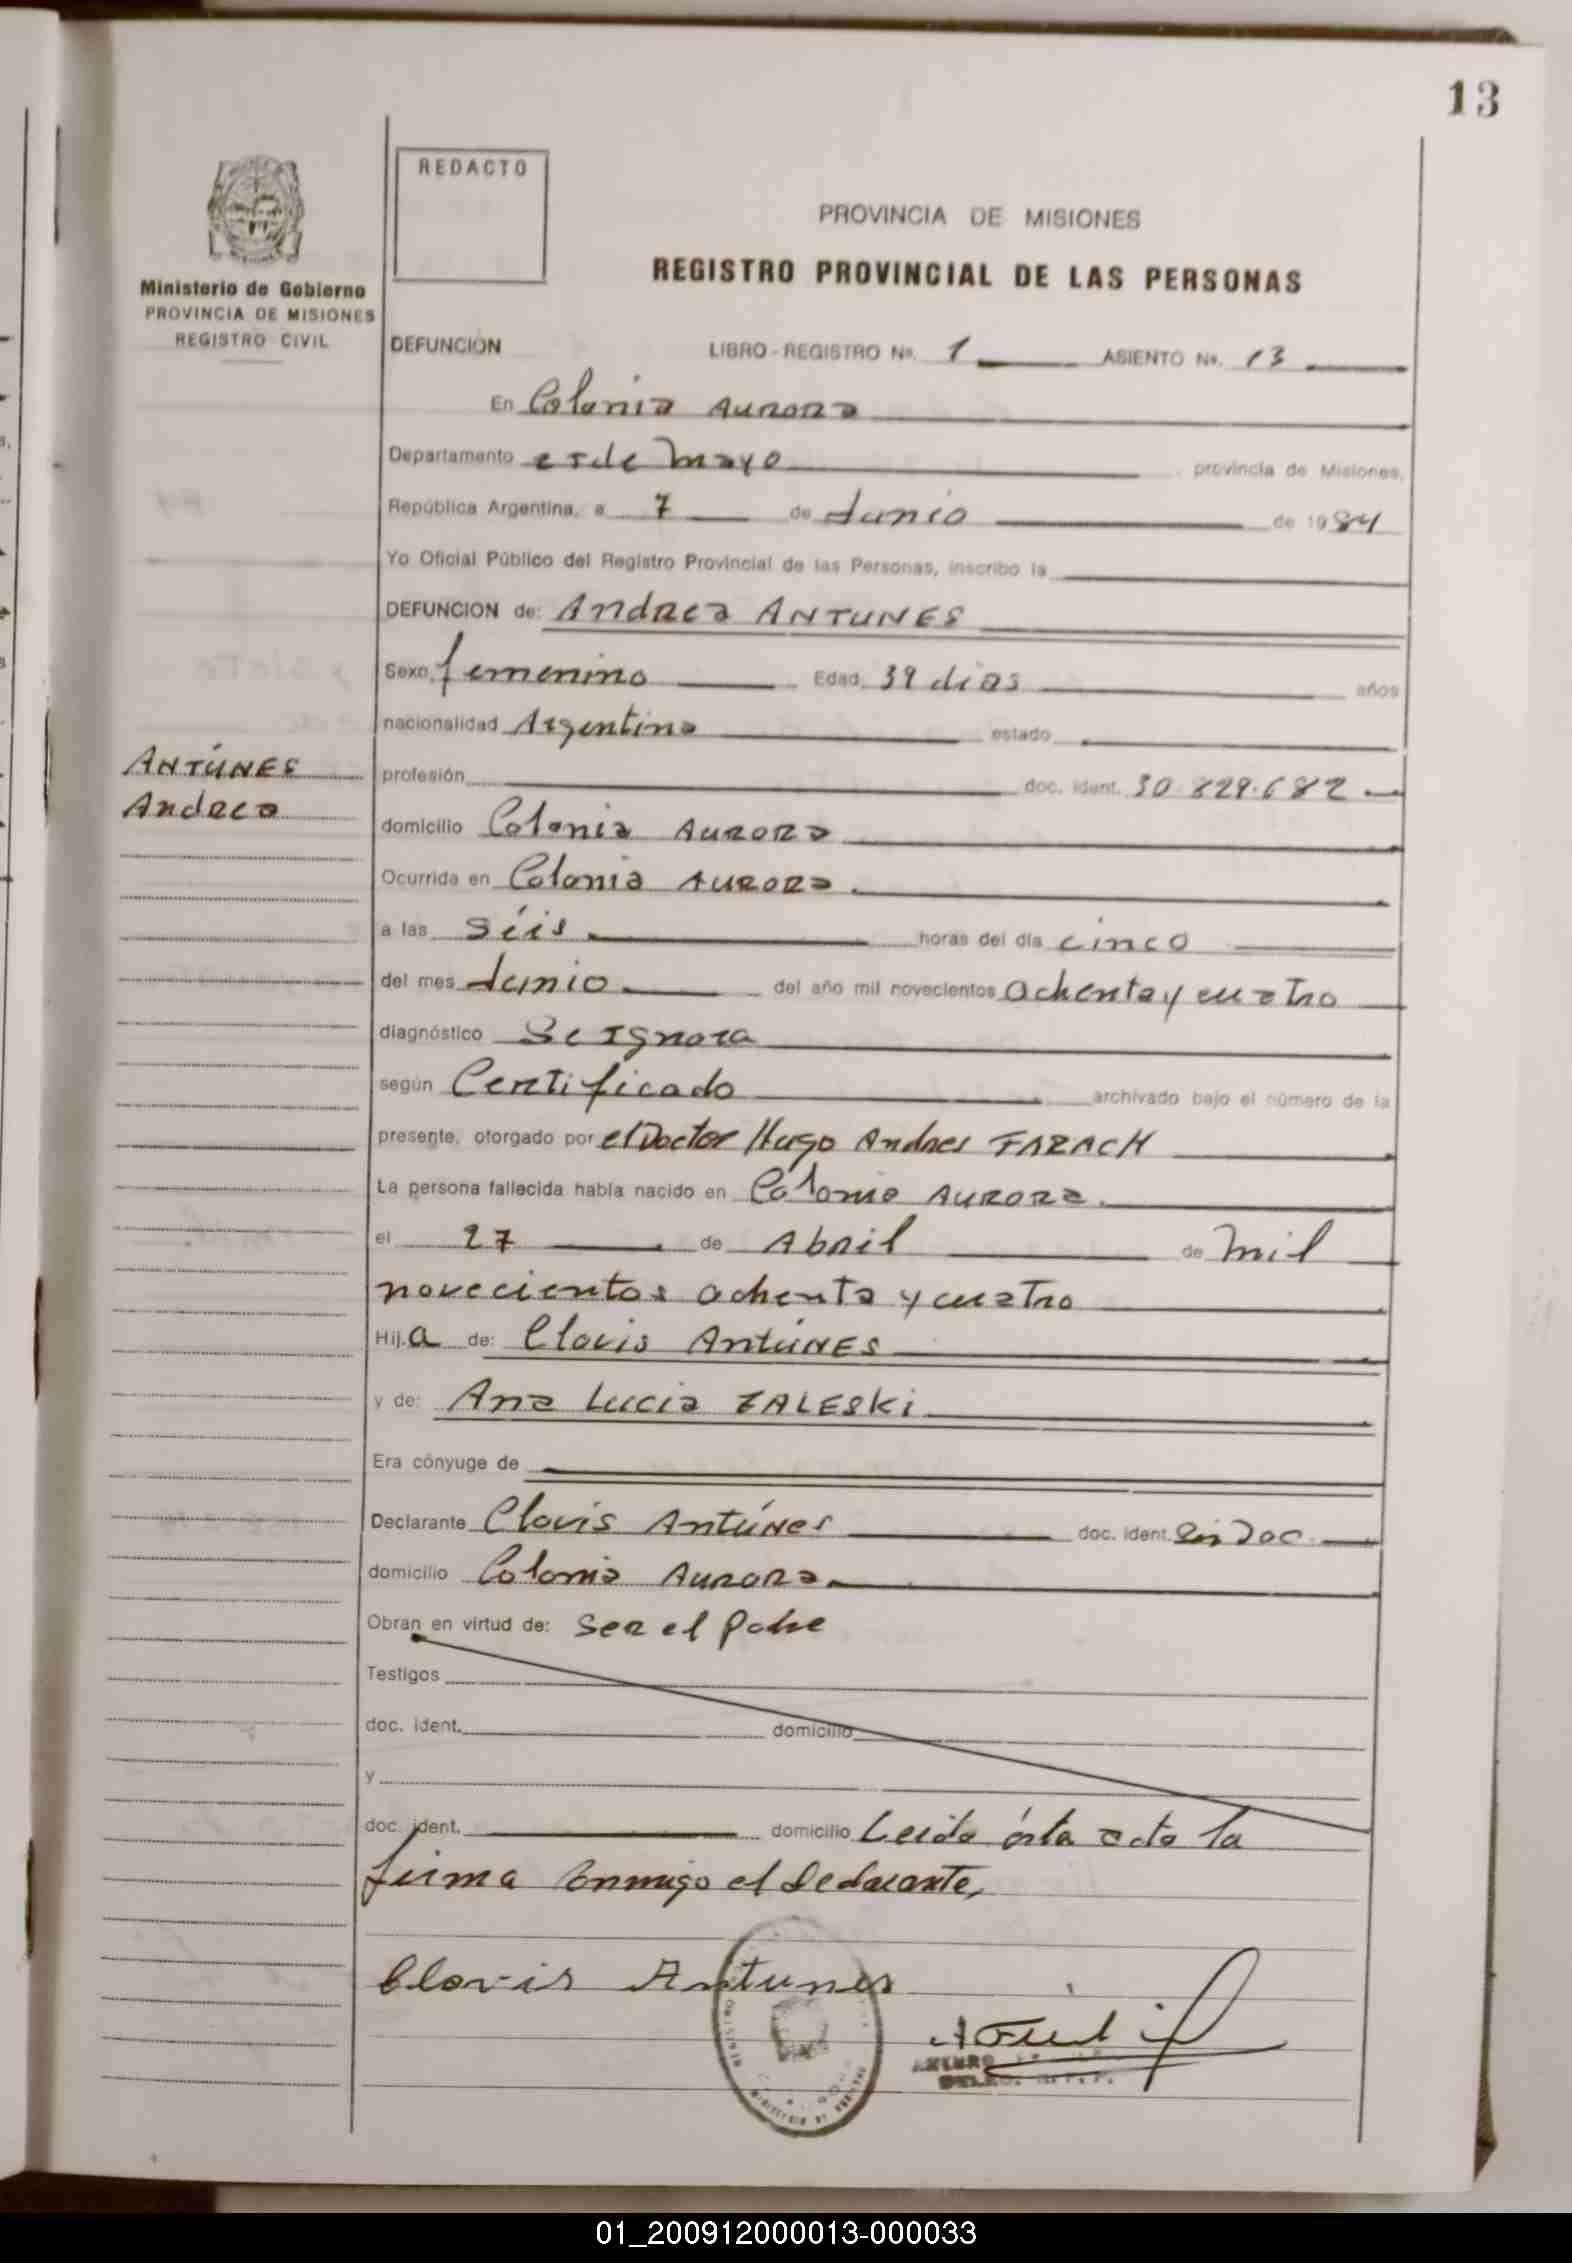 13
REDACTO
PROVINCIA DE MISIONES
REGISTRO PROVINCIAL DE LAS PERSONAS
Ministerio de Gobierno
PROVINCIA DE MISIONES
REGISTRO CIVIL
DEFUNCION LIBRO-REGISTRO No. 1 ASIENTO No. 13
En Colonia Aurora
Departamento 25 de Mayo provincia de Misiones,
República Argentina, a 7 de Junio de 1984
Yo Oficial Público del Registro Provincial de las Personas, inscribo la
DEFUNCION de: Andrea ANTUNES
Sexo, femenino Edad, 39 dias años
nacionalidad Argentina estado
ANTÚNES
Andrea
profesión doc. ident. 30.829.682
domicilio Colonia Aurora
Ocurrida en Colonia Aurora.
a las Séis horas del día cinco
del mes Junio del año mil novecientos ochenta y cuatro
diagnóstico Se Ignora
según Certificado archivado bajo el número de la
presente, otorgado por el Doctor Hugo Andres FARACH
La persona fallecida había nacido en Colonia Aurora.
el 27 de Abril de mil
novecientos ochenta y cuatro
Hija de: Clovis ANTÚNES
y de: Ana Lucia ZALESKi
Era cónyuge de
Declarante Clovis Antúnes doc. ident. Sin Doc.
domicilio Colonia Aurora
Obran en virtud de: Ser el Padre
Testigos
doc. ident. domicilio
y
doc. ident. domicilio Leida ésta acta la
firma Conmigo el Declarante,
Clovis Antunes
ARTURO
01_200912000013-000033